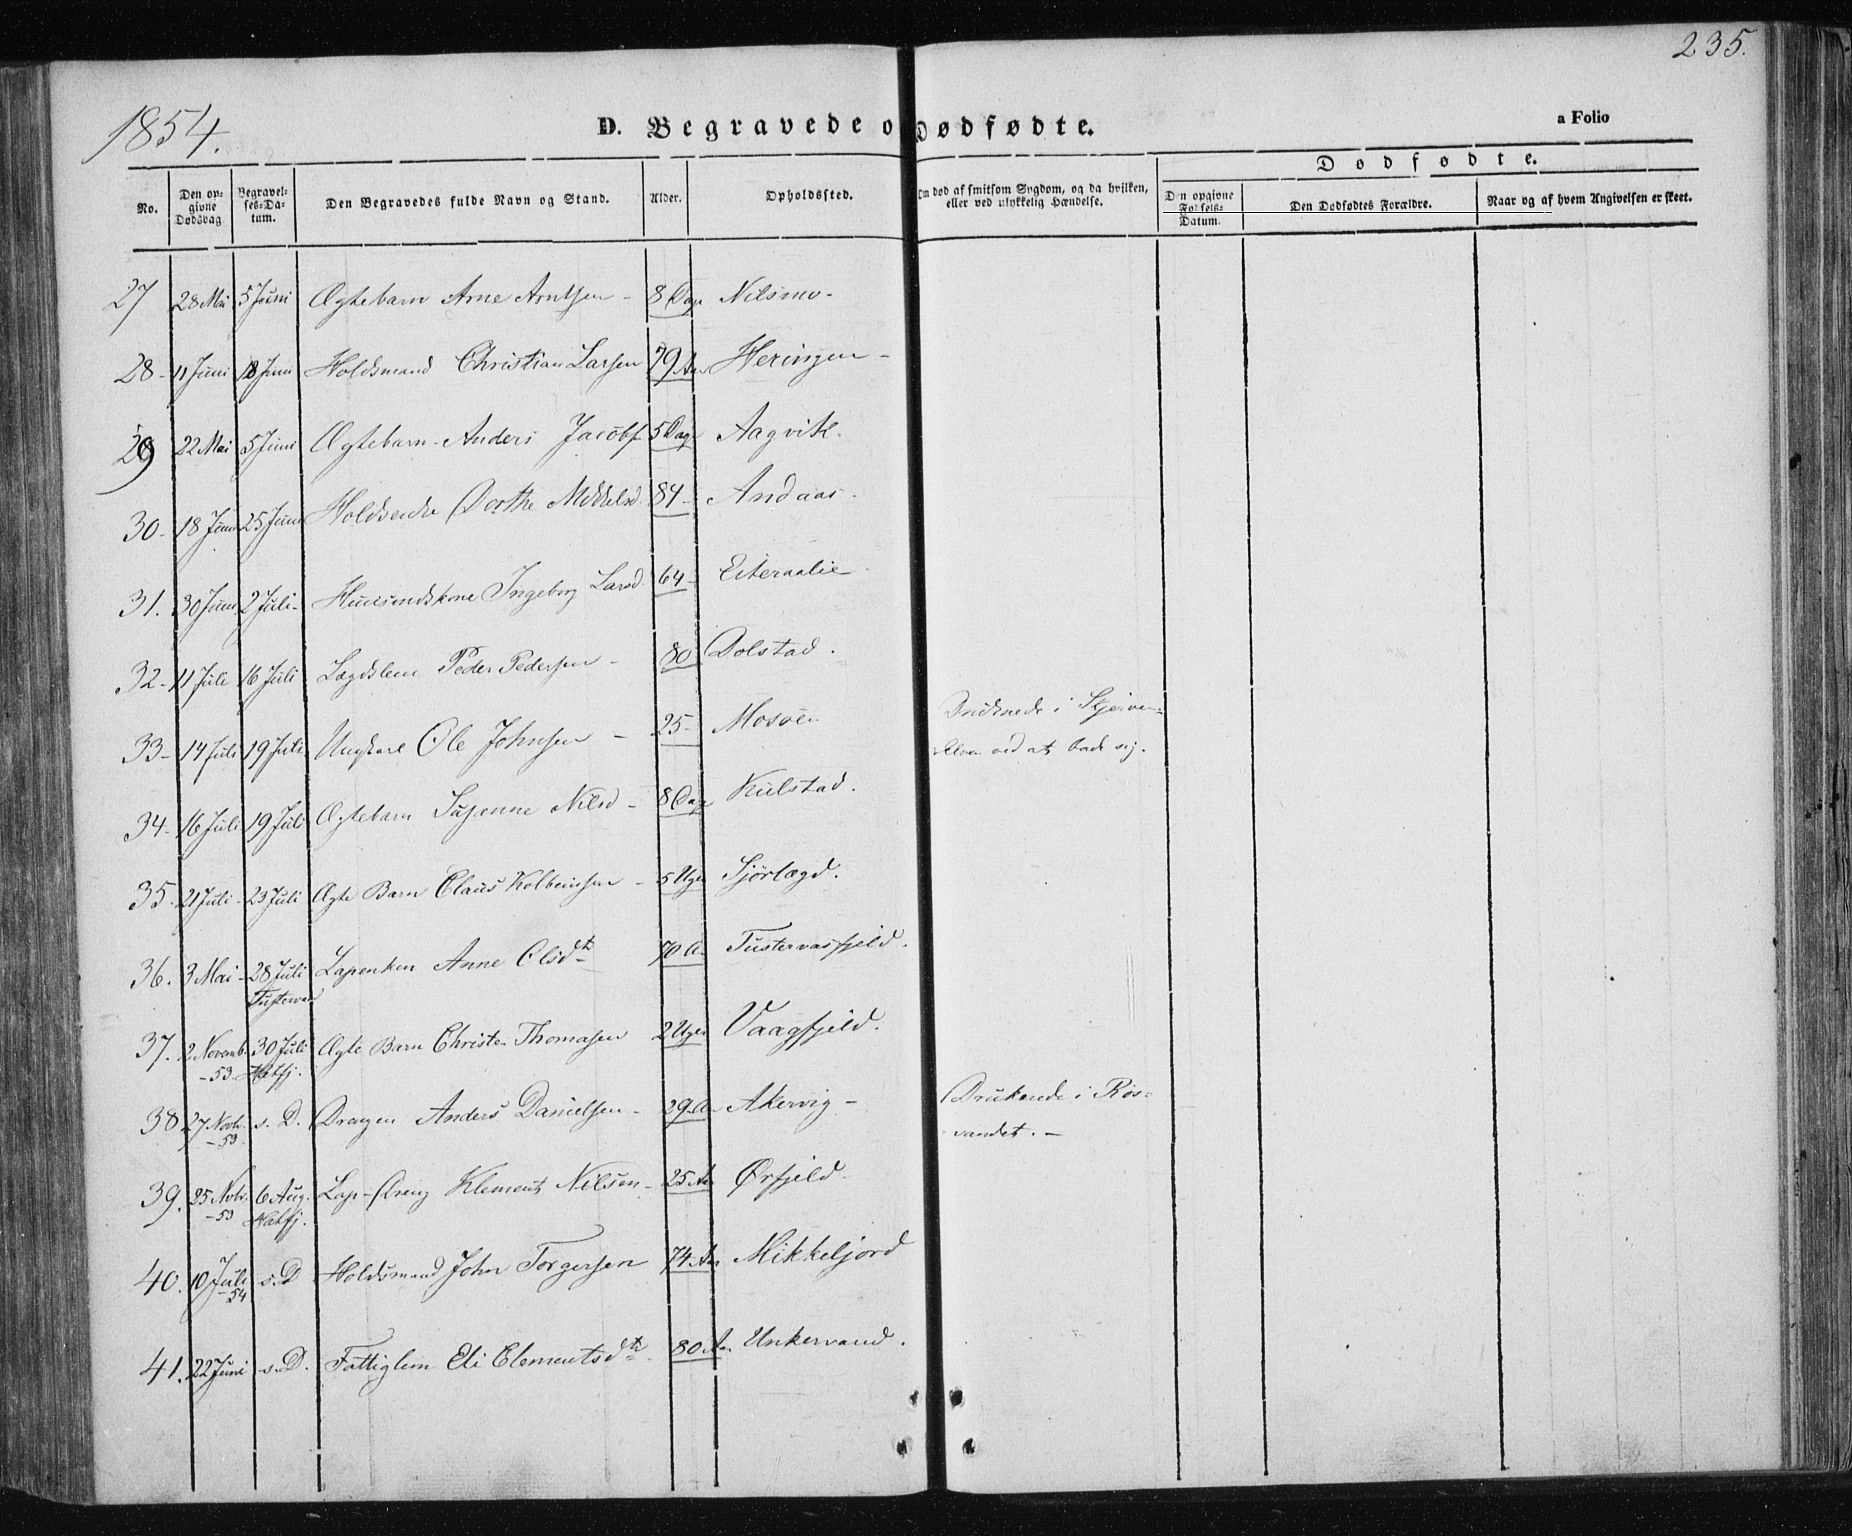 235.
1854.
D. Begravede o Dødfødte.
a Folio
No.
Den op-
givne
Dødsdag
Begravel-
ses-Da-
tum.
Den Begravedes fulde Navn og Stand.
Alder.
Opholdssted.
Om død af smitsom Sygdom, og da hvilken,
eller ved ulykkelig Hændelse.
Dødfødte.
Den opgivne
Fødsels-
Datum.
Den Dødfødtes Forældre.
Naar og af hvem Angivelsen er skeet.
27 28 Mai 5 Juni Ægtebarn Arne Arntsen - 8 Dage Nilsmo-
28- 11 Juni 18 Juni Holdsmand Christian Larsen 79 Aar Heringen -
29 22 Mai 5 Juni Ægtebarn Anders Jacobs. 5 Dage Aagvik.
30- 18 Juni 25 Juni Holdsenke Dorthe Mikkelsd. 84- Andaas.
31. 30 Juni 2 Juli- Huusmdskone Ingeborg Larsd. 64- Eiteraalie.
32- 11 Juli 16 Juli Lægdslem Peder Pedersen - 80 Dolstad.
33- 14 Juli 19 Juli Ungkarl Ole Johnsen - 25- Mosøen Druknede i Skjerven-
elven ved at bade sig.
34- 16 Juli 19 Juli Ægtebarn Susanne Nilsd - 8 Dage Kulstad.
35. 21 Juli- 23 Juli Ægte Barn Claus Kolbeinsen - 5 Uger Sjörlægd.
36. 3 Mai- 28 Juli Lapenken Anne Olsdt. 70 A. Tustervasfjeld.
Tustervas
37. 2 Novemb. 30 Juli Ægte Barn Christen Thomasen 2 Uger Vaagfjeld.
-53 Hatfj.
38 27 Novb. s. D. Drengen Anders Danielsen- 29 A. Akervig- Druknede i Røs-
-53. vandet.-
39. 25 Novb. 6 Aug. Lap-Dreng Klement Nilsen- 25 Aar Ørfjeld.
-53 Hatfj.
40. 10 Juli s. D Holdsmand John Torgersen 74 Aar Mikkeljord
-54
41. 22 Juni s. D. Fattiglem Eli Clementsdt. 80 Aar Unkervand.